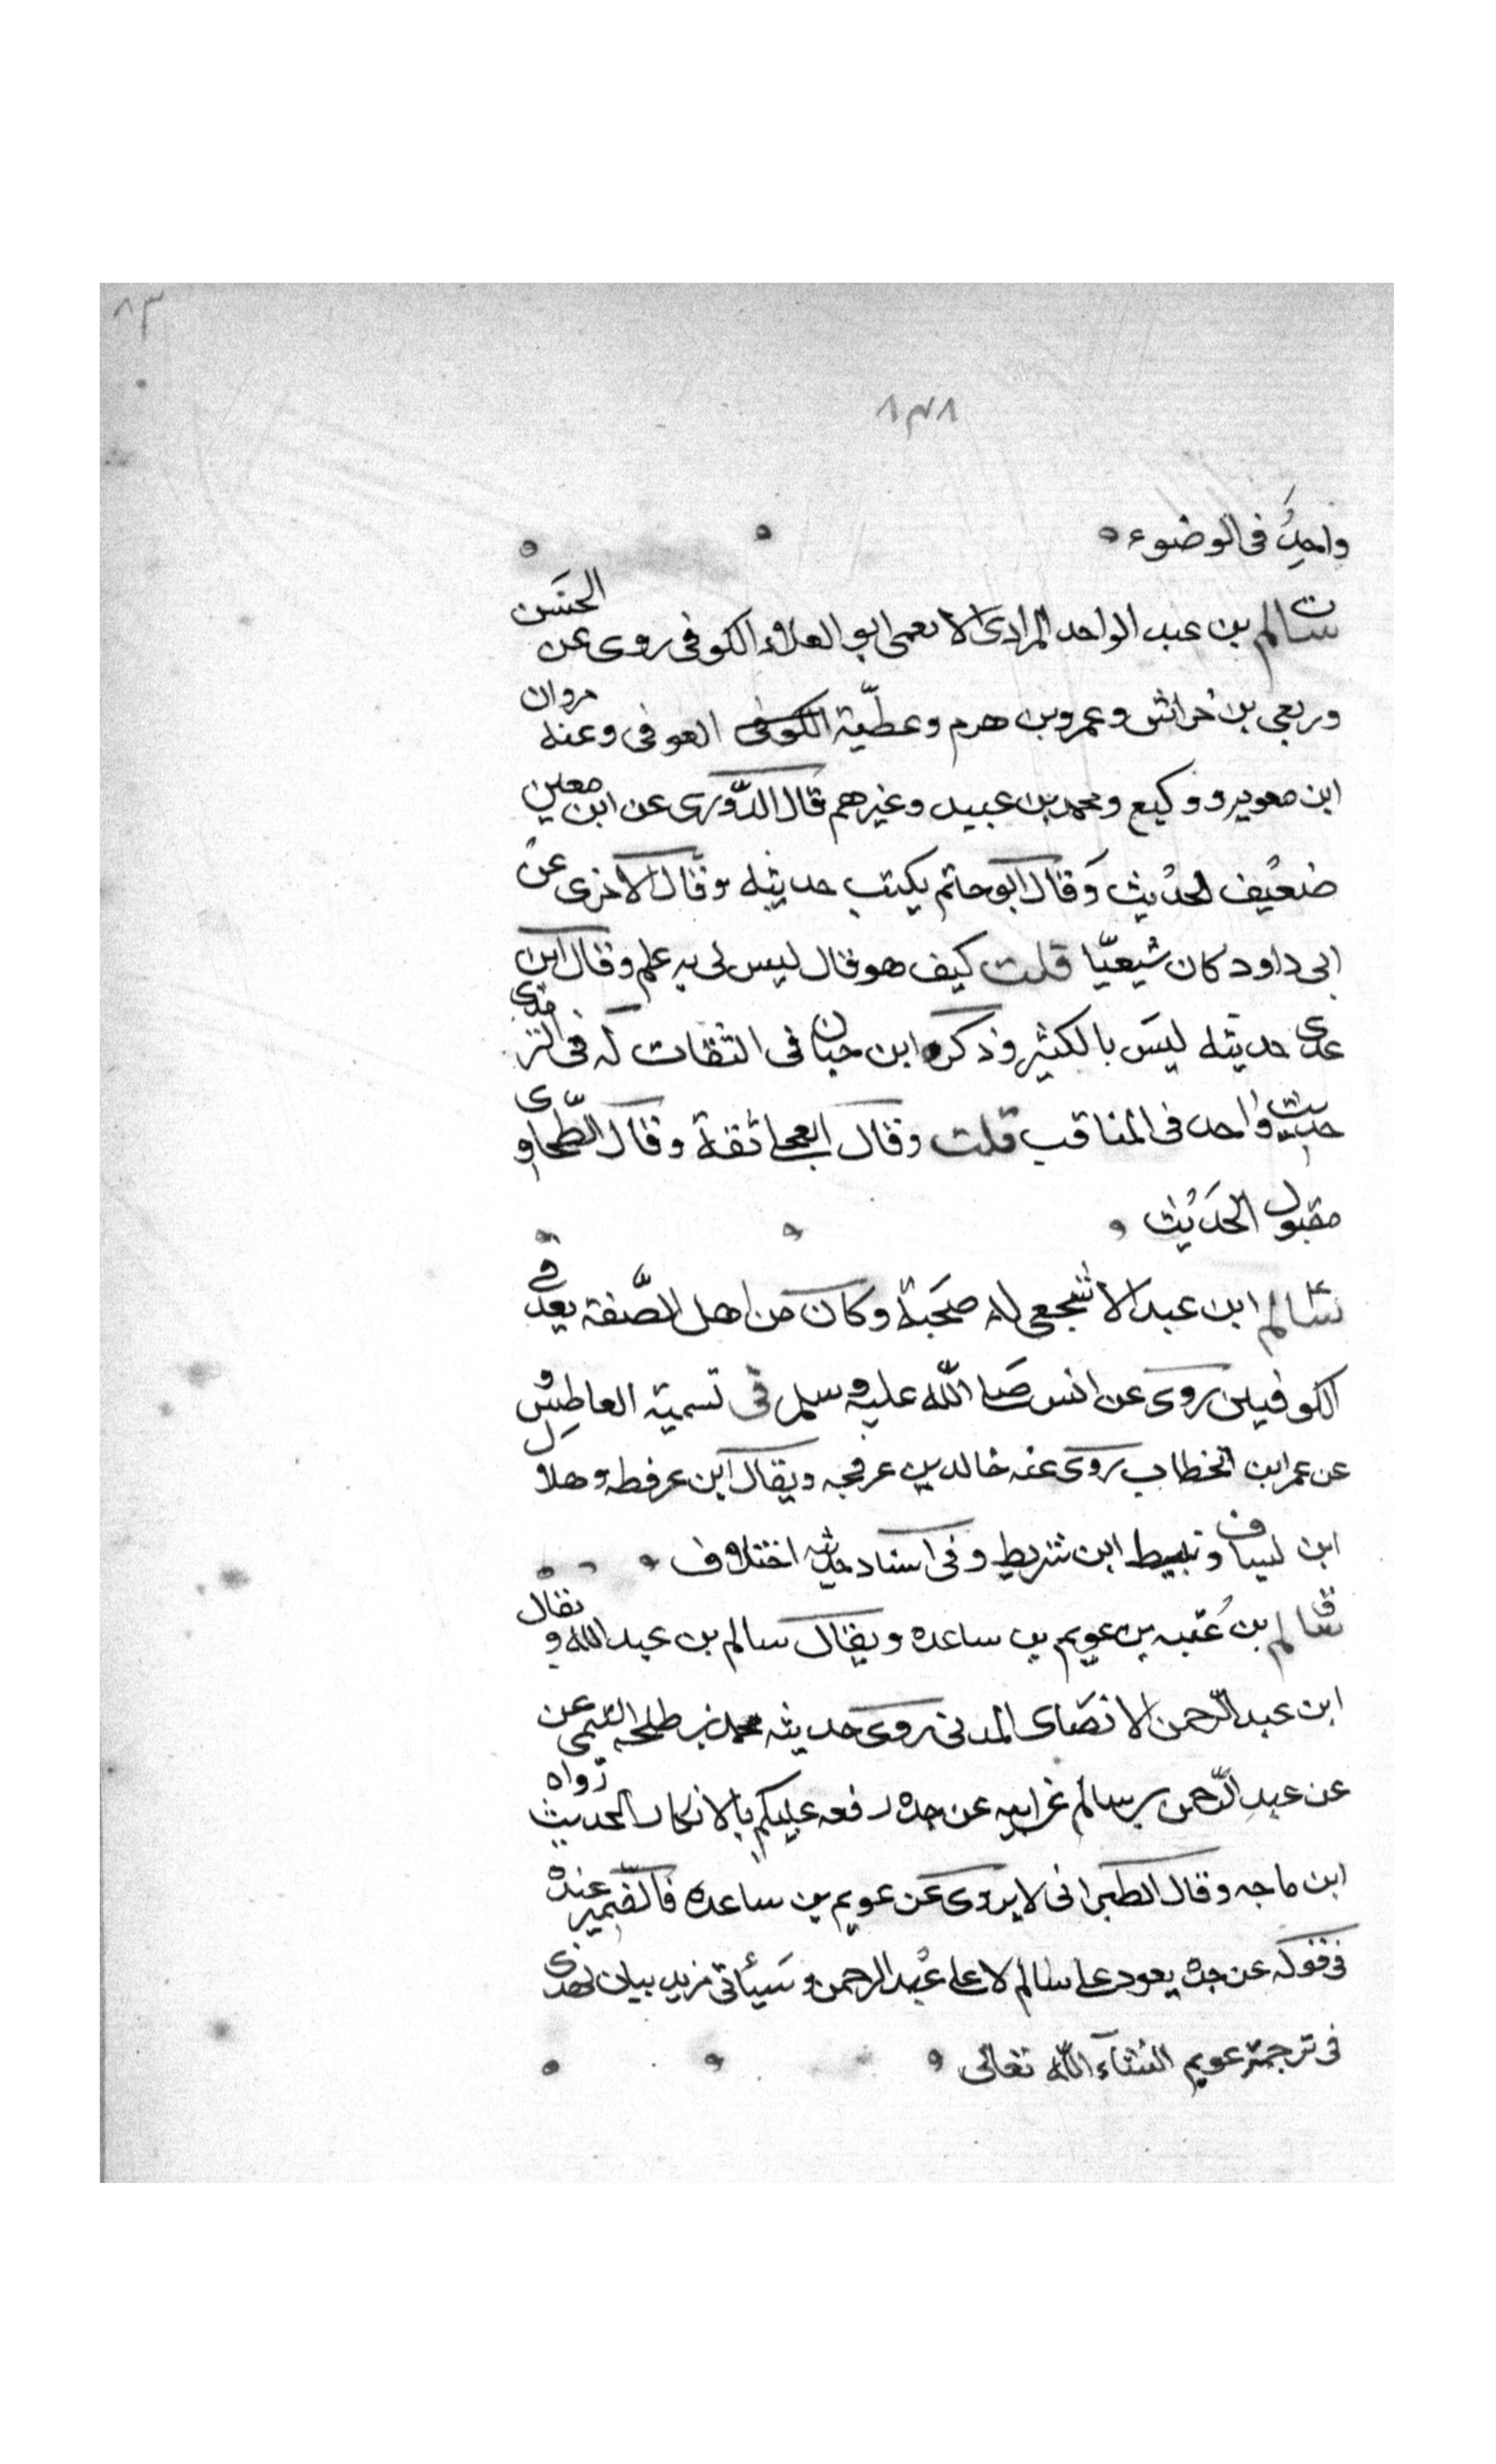 ٨٣
٨٣٨
واحدٌ في الوضوء
سالم بن عبد الواحد المرادي الاعمى ابو العلاء الكوفي روى عن الحسن
وربعي بن خراش وعمرو بن هرم وعطيّة الكوفي العوفي وعنه مروان
ابن معويه ووكيع ومحمد بن عبيد وغيرهم قال الدّوري عن ابن معين
ضعيف الحديث وقال ابو حاتم يكتب حديثه وقال الاخرى عن
ابي داود كان شيعيّا قلت كيف هو قال ليس لي به علم وقال ابن
عدي حديثه ليس بالكثير وذكره ابن حبان في الثقات له في الترمذي
حديث واحد في المناقب قلت وقال العجلي ثقة وقال الطّحاوي
مقبول الحديث
سالم ابن عبد الاشجعي له صحبة وكان من اهل الصّفة يعد في
الكوفيين روى عن انس صلى الله عليه وسلم في تسمية العاطس و
عن عمر ابن الخطاب روى عنه خالد بن عرفجه ويقال ابن عرفطه وهلال
ابن يساف ونبيط ابن شريط وفي اسناد حديثه اختلاف
سالم بن عُتبه بن عويم بن ساعده ويقال سالم بن عبد الله ويقال
ابن عبد الرّحمن الانصاى المدني روى حديثه محمد بن طلحه التيمي عن
عن عبد الرّحمن بن سالم عن ابيه عن جده رفعه عليكم بالابكار الحديث رواه
ابن ماجه وقال الطبراني لا يروى عن عويم بن ساعده فالضّمير عنده
في قوله عن جده يعود على سالم لا على عبد الرحمن وسيأتي مزيد بيان لهذى
في ترجمة عويم انشآء الله تعالى